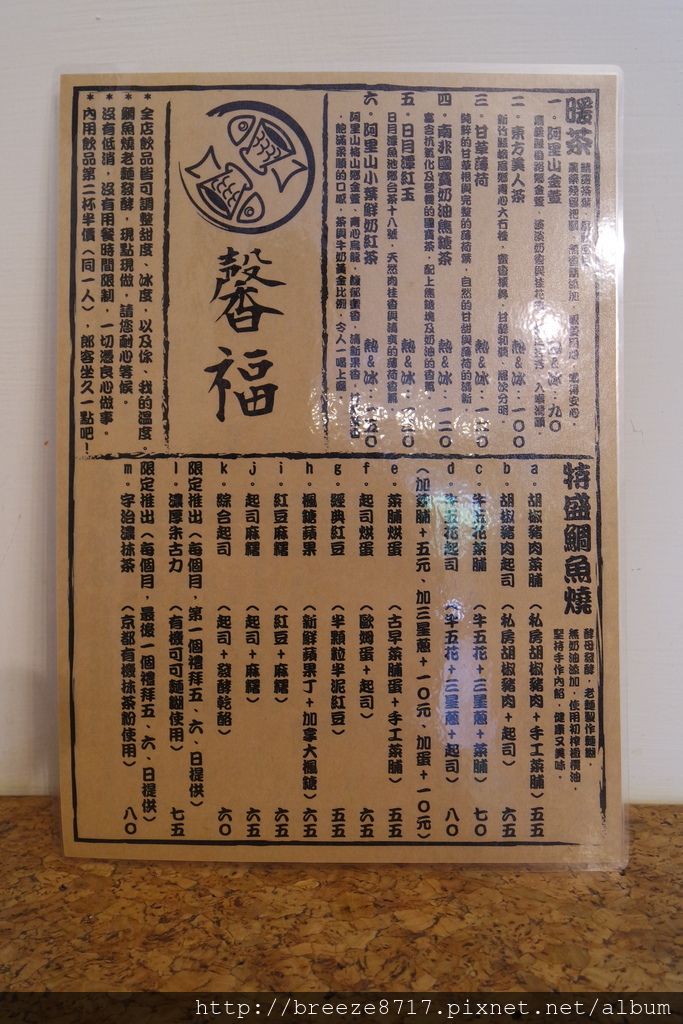 暖茶
一。阿里山金萱
熱&冰:九0
二。東方美人茶
熱&冰:一00
三。甘草薄荷
熱&冰:一二0
純粹的甘草根與完整的薄荷葉,自然的甘甜與薄荷的清新。
四。南非國寶奶油焦糖茶
熱&冰:一二0
富含抗氧化及營養的國寶茶,配上焦糖塊及奶油的香氣
五。日月潭紅玉
熱&冰:一二0
日月潭魚池鄉台茶十八號,天然肉桂香與清爽的薄荷香氣
六。阿里山小葉鮮奶紅茶
熱&冰:一五0
飽滿柔順的口感,茶與牛奶黃金比例,令人一喝上癮。
馨福
*全店飲品皆可調整甜度、冰度,以及你、我的溫度。
*鯛魚燒老麵發酵,現點現做,請您耐心等候。
*沒有低消,沒有用餐時間限制,一切憑良心做事。
*內用飲品第二杯半價(同一人),郎客坐久一點吧!
特盛鯛魚燒
酵母發酵,老麵製作麵糊,
無奶油添加,使用初榨橄欖油,
堅持手作內餡,健康又美味。
a。胡椒豬肉菜脯(私房胡椒豬肉+手工菜脯)五五
b。胡椒豬肉起司(私房胡椒豬肉+起司)六五
c。牛五花菜脯(牛五花+三星蔥+菜脯)七0
d。牛五花起司(牛五花+三星蔥+起司)八0
(加菜脯+五元、加三星蔥+一0元、加蛋+一0元)
e。菜脯烘蛋(古早菜脯蛋+手工菜脯)六五
f。起司烘蛋(歐姆蛋+起司)六五
g。經典紅豆(半顆粒半泥紅豆)五五
h。楓糖蘋果(新鮮蘋果丁+加拿大楓糖)六五
i。紅豆麻糬(紅豆+麻糬)六五
j。起司麻糬(起司+麻糬)六五
k。綜合起司(起司+發酵乾酪)六0
限定推出(每個月,第一個禮拜五、六、日提供)
l。濃厚朱古力(有機可可麵糊使用)七五
限定推出(每個月,最後一個禮拜五、六、日提供)
m。宇治濃抹茶(京都有機抹茶粉使用)八0
http://breeze8717.pixnet.net/album